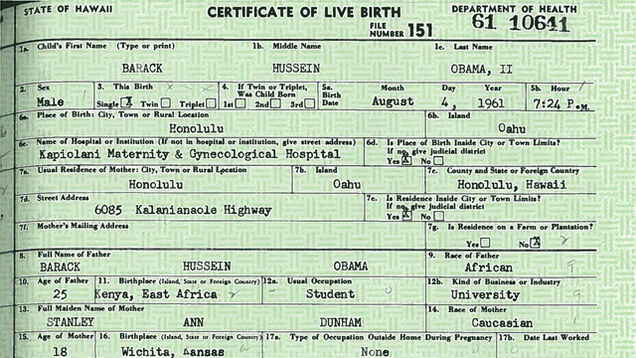 STATE OF HAWAII CERTIFICATE OF LIVE BIRTH DEPARTMENT OF HEALTH
FILE NUMBER 151 61 10641
1a. Child's First Name (Type or print) 1b. Middle Name 1c. Last Name
BARACK HUSSEIN OBAMA, II
2. Sex 3. This Birth 4. If Twin or Triplet, Was Child Born 5a. Birth Date Month Day Year 5b. Hour
Male Single X Twin Triplet 1st 2nd 3rd August 4, 1961 7:24 P.M.
6a. Place of Birth: City, Town or Rural Location 6b. Island
Honolulu Oahu
6c. Name of Hospital or Institution (If not in hospital or institution, give street address) 6d. Is Place of Birth Inside City or Town Limits? If no, give judicial district
Kapiolani Maternity & Gynecological Hospital Yes X No
7a. Usual Residence of Mother: City, Town or Rural Location 7b. Island 7c. County and State or Foreign Country
Honolulu Oahu Honolulu, Hawaii
7d. Street Address 7e. Is Residence Inside City or Town Limits? If no, give judicial district
6085 Kalanianaole Highway Yes X No
7f. Mother's Mailing Address 7g. Is Residence on a Farm or Plantation?
Yes No X
8. Full Name of Father 9. Race of Father
BARACK HUSSEIN OBAMA African 9
10. Age of Father 11. Birthplace (Island, State or Foreign Country) 12a. Usual Occupation 12b. Kind of Business or Industry
25 Kenya, East Africa Student 0 University 9
13. Full Maiden Name of Mother 14. Race of Mother
STANLEY ANN DUNHAM Caucasian
15. Age of Mother 16. Birthplace (Island, State or Foreign Country) 17a. Type of Occupation Outside Home During Pregnancy 17b. Date Last Worked
18 Wichita, Kansas None